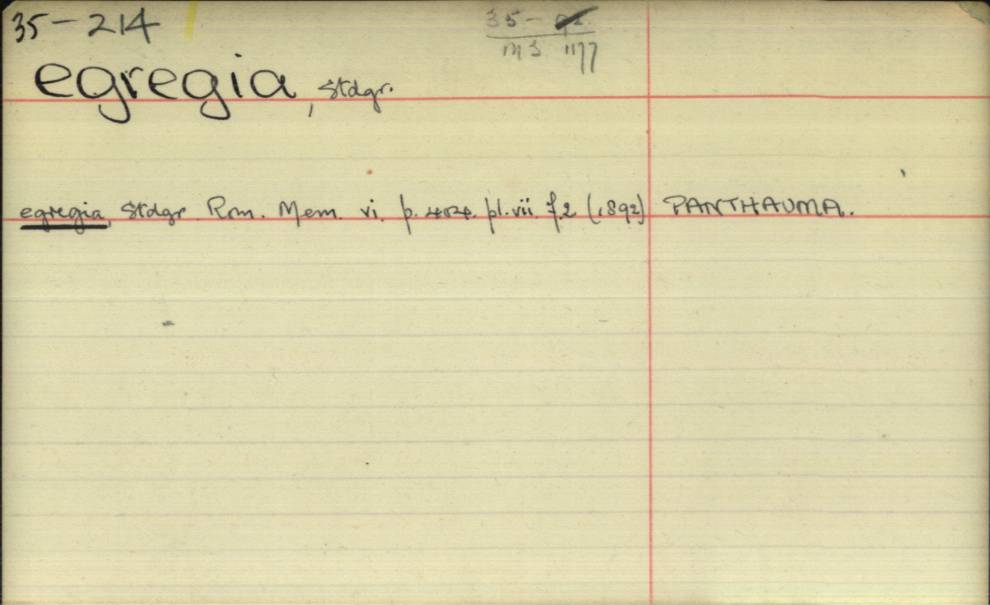 35-214
35-
egregia, Stdgr.
egregia, Stdgr. Rom. Mem. vi. p. 404. pl. vii. f.2 (1892) PANTHAUMA.